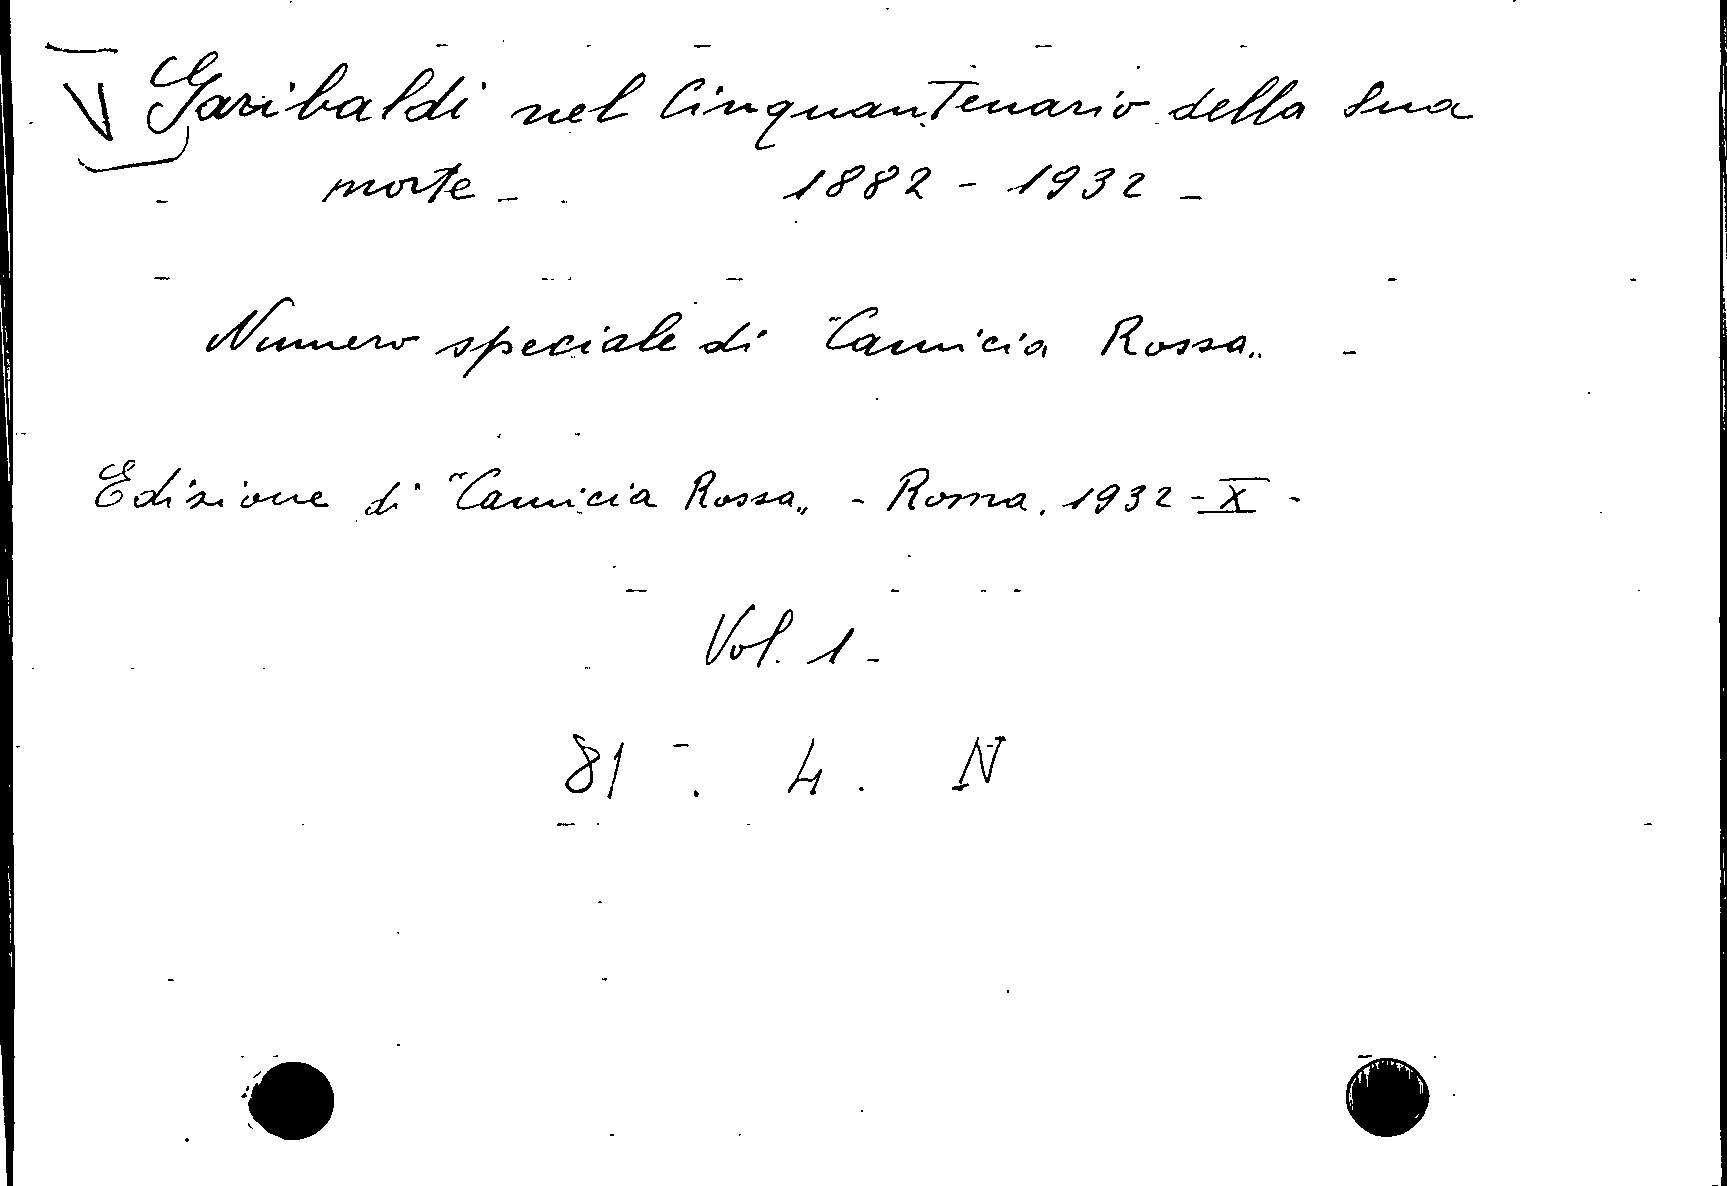 V Garibaldi nel Cinquantenario della sua
morte - 1882 - 1932 -
Numero speciale di "Camicia Rossa„ -
Edizione di "Camicia Rossa„ - Roma. 1932 - X -
Vol. 1 -
81 . 4 . N